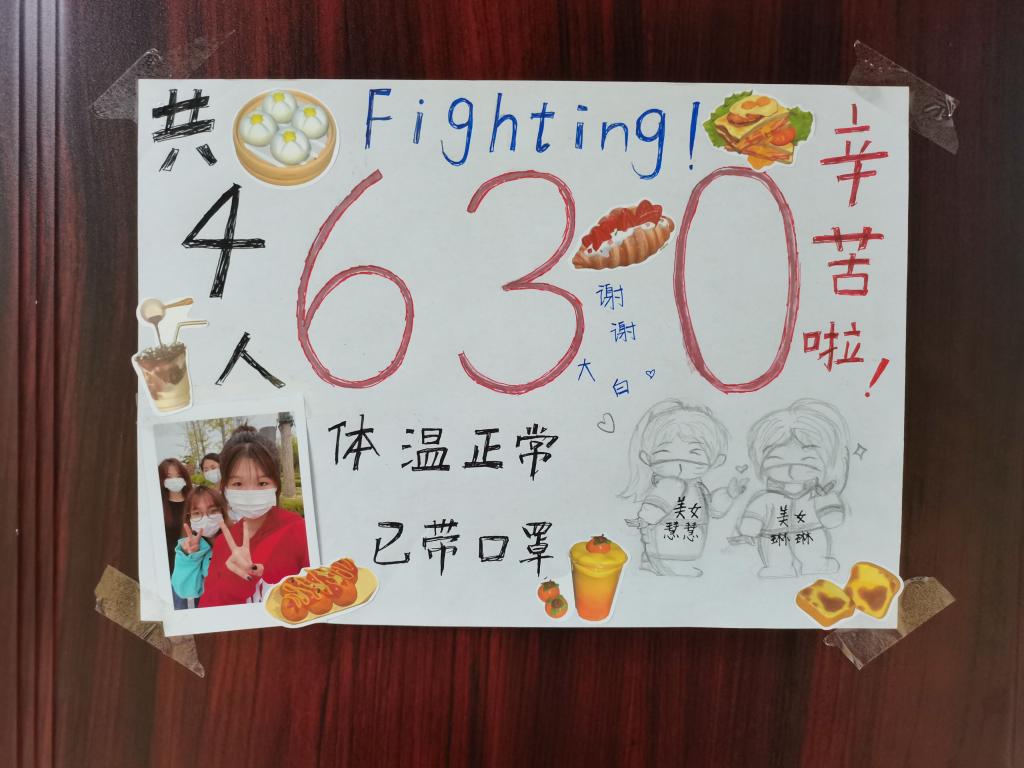 共
4
人
Fighting!
630
辛
苦
啦!
谢
谢
大
白
体温正常
已带口罩
美女
慧慧
美女
琳琳